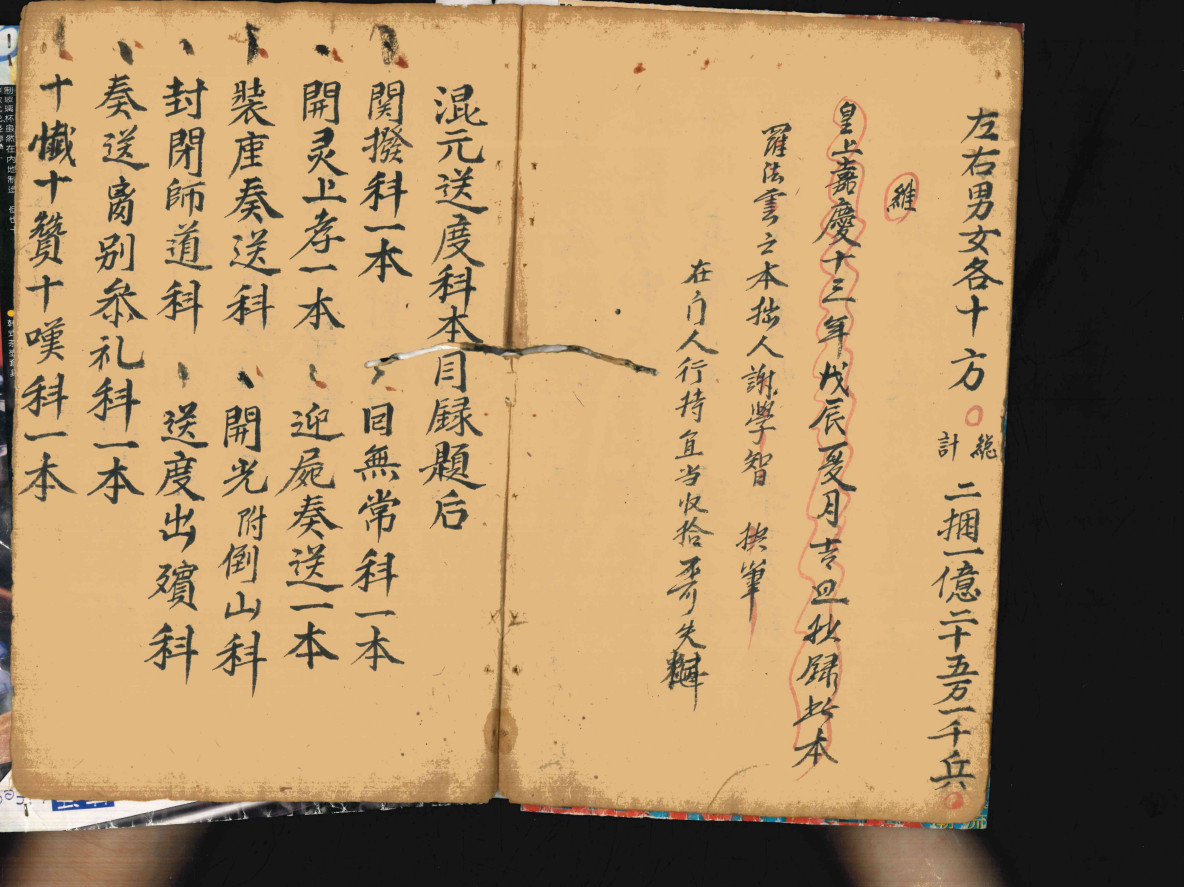 左右男女各十方 總計 二捆一億二十五万一千兵
維
皇上嘉慶十三年戊辰夏月吉旦抄録此本
羅法雲之本拙人謝學智 执筆
在门人行持宜当收拾 失
混元送度科本目録題后
関撥科一本 目無常科一本
開灵上孝一本 迎屍奏送一本
裝座奏送科 開光附倒山科
封閉師道科 送度出殯科
奏送离别叅礼科一本
十懺十贊十嘆科一本